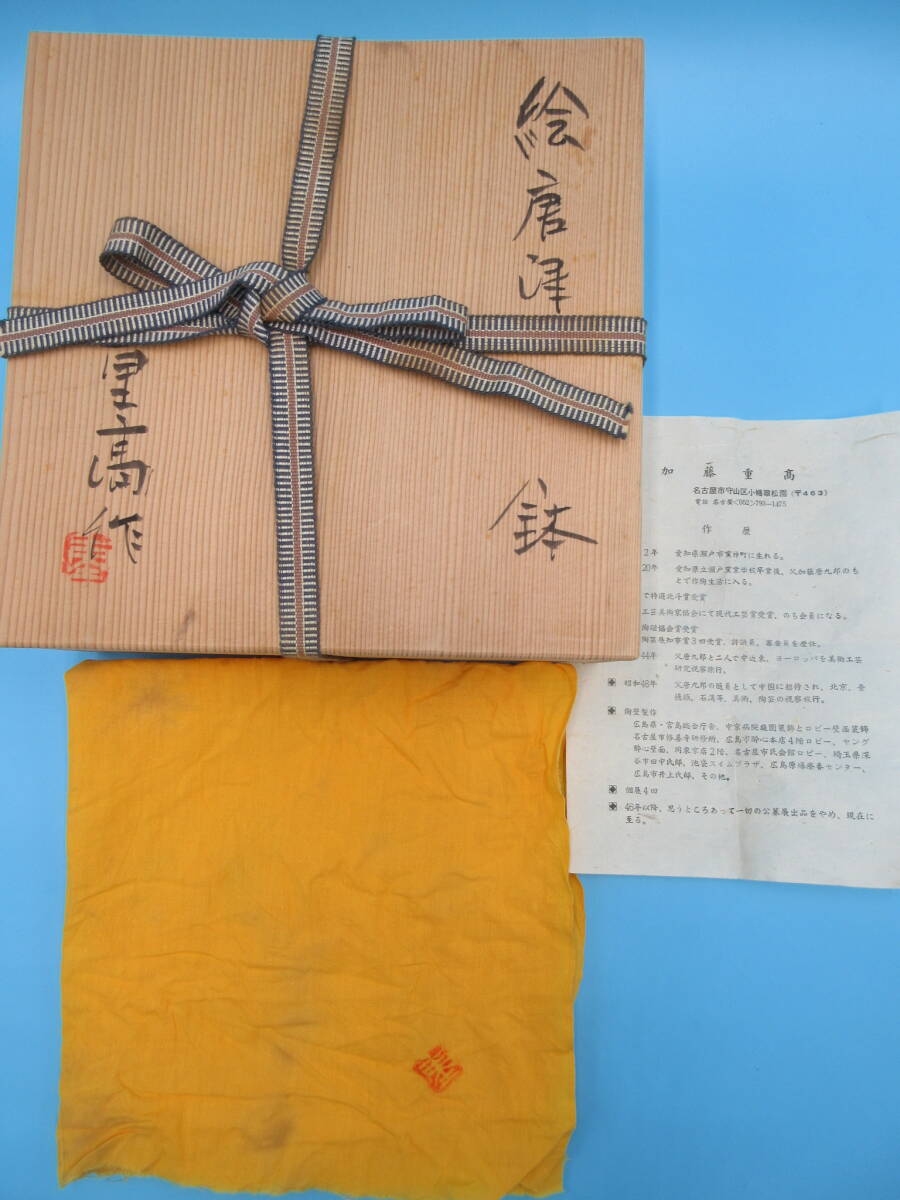 絵唐津
鉢
重高作
加藤重高
名古屋市守山区小幡翠松園（〒463）
電話 名古屋<052>793—1475
作歴
2年 愛知県瀬戸市窯神町に生れる。
20年 愛知県立瀬戸窯業学校卒業後、父加藤唐九郎のも
とで作陶生活に入る。
で特選北斗賞受賞
工芸美術家協会にて現代工芸賞受賞、のち会員になる。
陶磁協会賞受賞
陶芸展知事賞3回受賞、評議員、審査員を歴任。
44年 父唐九郎と二人で中近東、ヨーロッパを美術工芸
研究視察旅行。
昭和48年 父唐九郎の随員として中国に招待され、北京、景
徳鎮、石湾等、美術、陶芸の視察旅行。
陶壁製作
広島県・宮島総合庁舎、中京病院庭園装飾とロビー壁面装飾
名古屋市修養寺研修所、広島市酔心本店4階ロビー、ヤング
酔心壁面、同東京店2階、名古屋市民会館ロビー、埼玉県深
谷市田中氏邸、池袋スイムプラザ、広島原爆療養センター、
広島市井上氏邸、その他。
個展4回
46年以降、思うところあって一切の公募展出品をやめ、現在に
至る。